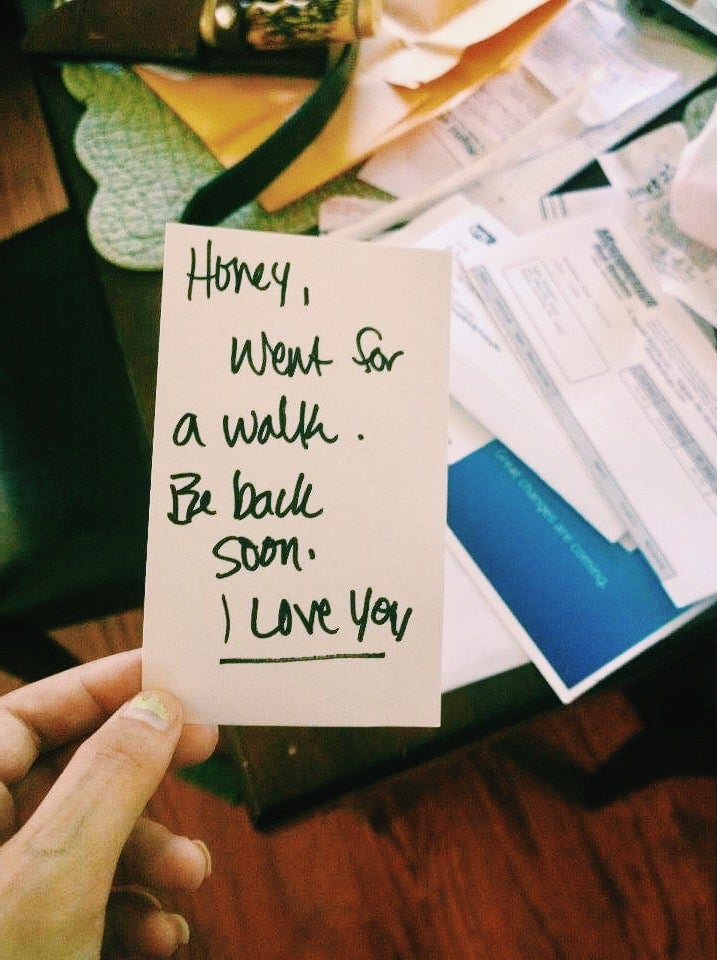 Honey,
Went for
a walk.
Be back
soon.
I Love You
Great changes are coming.